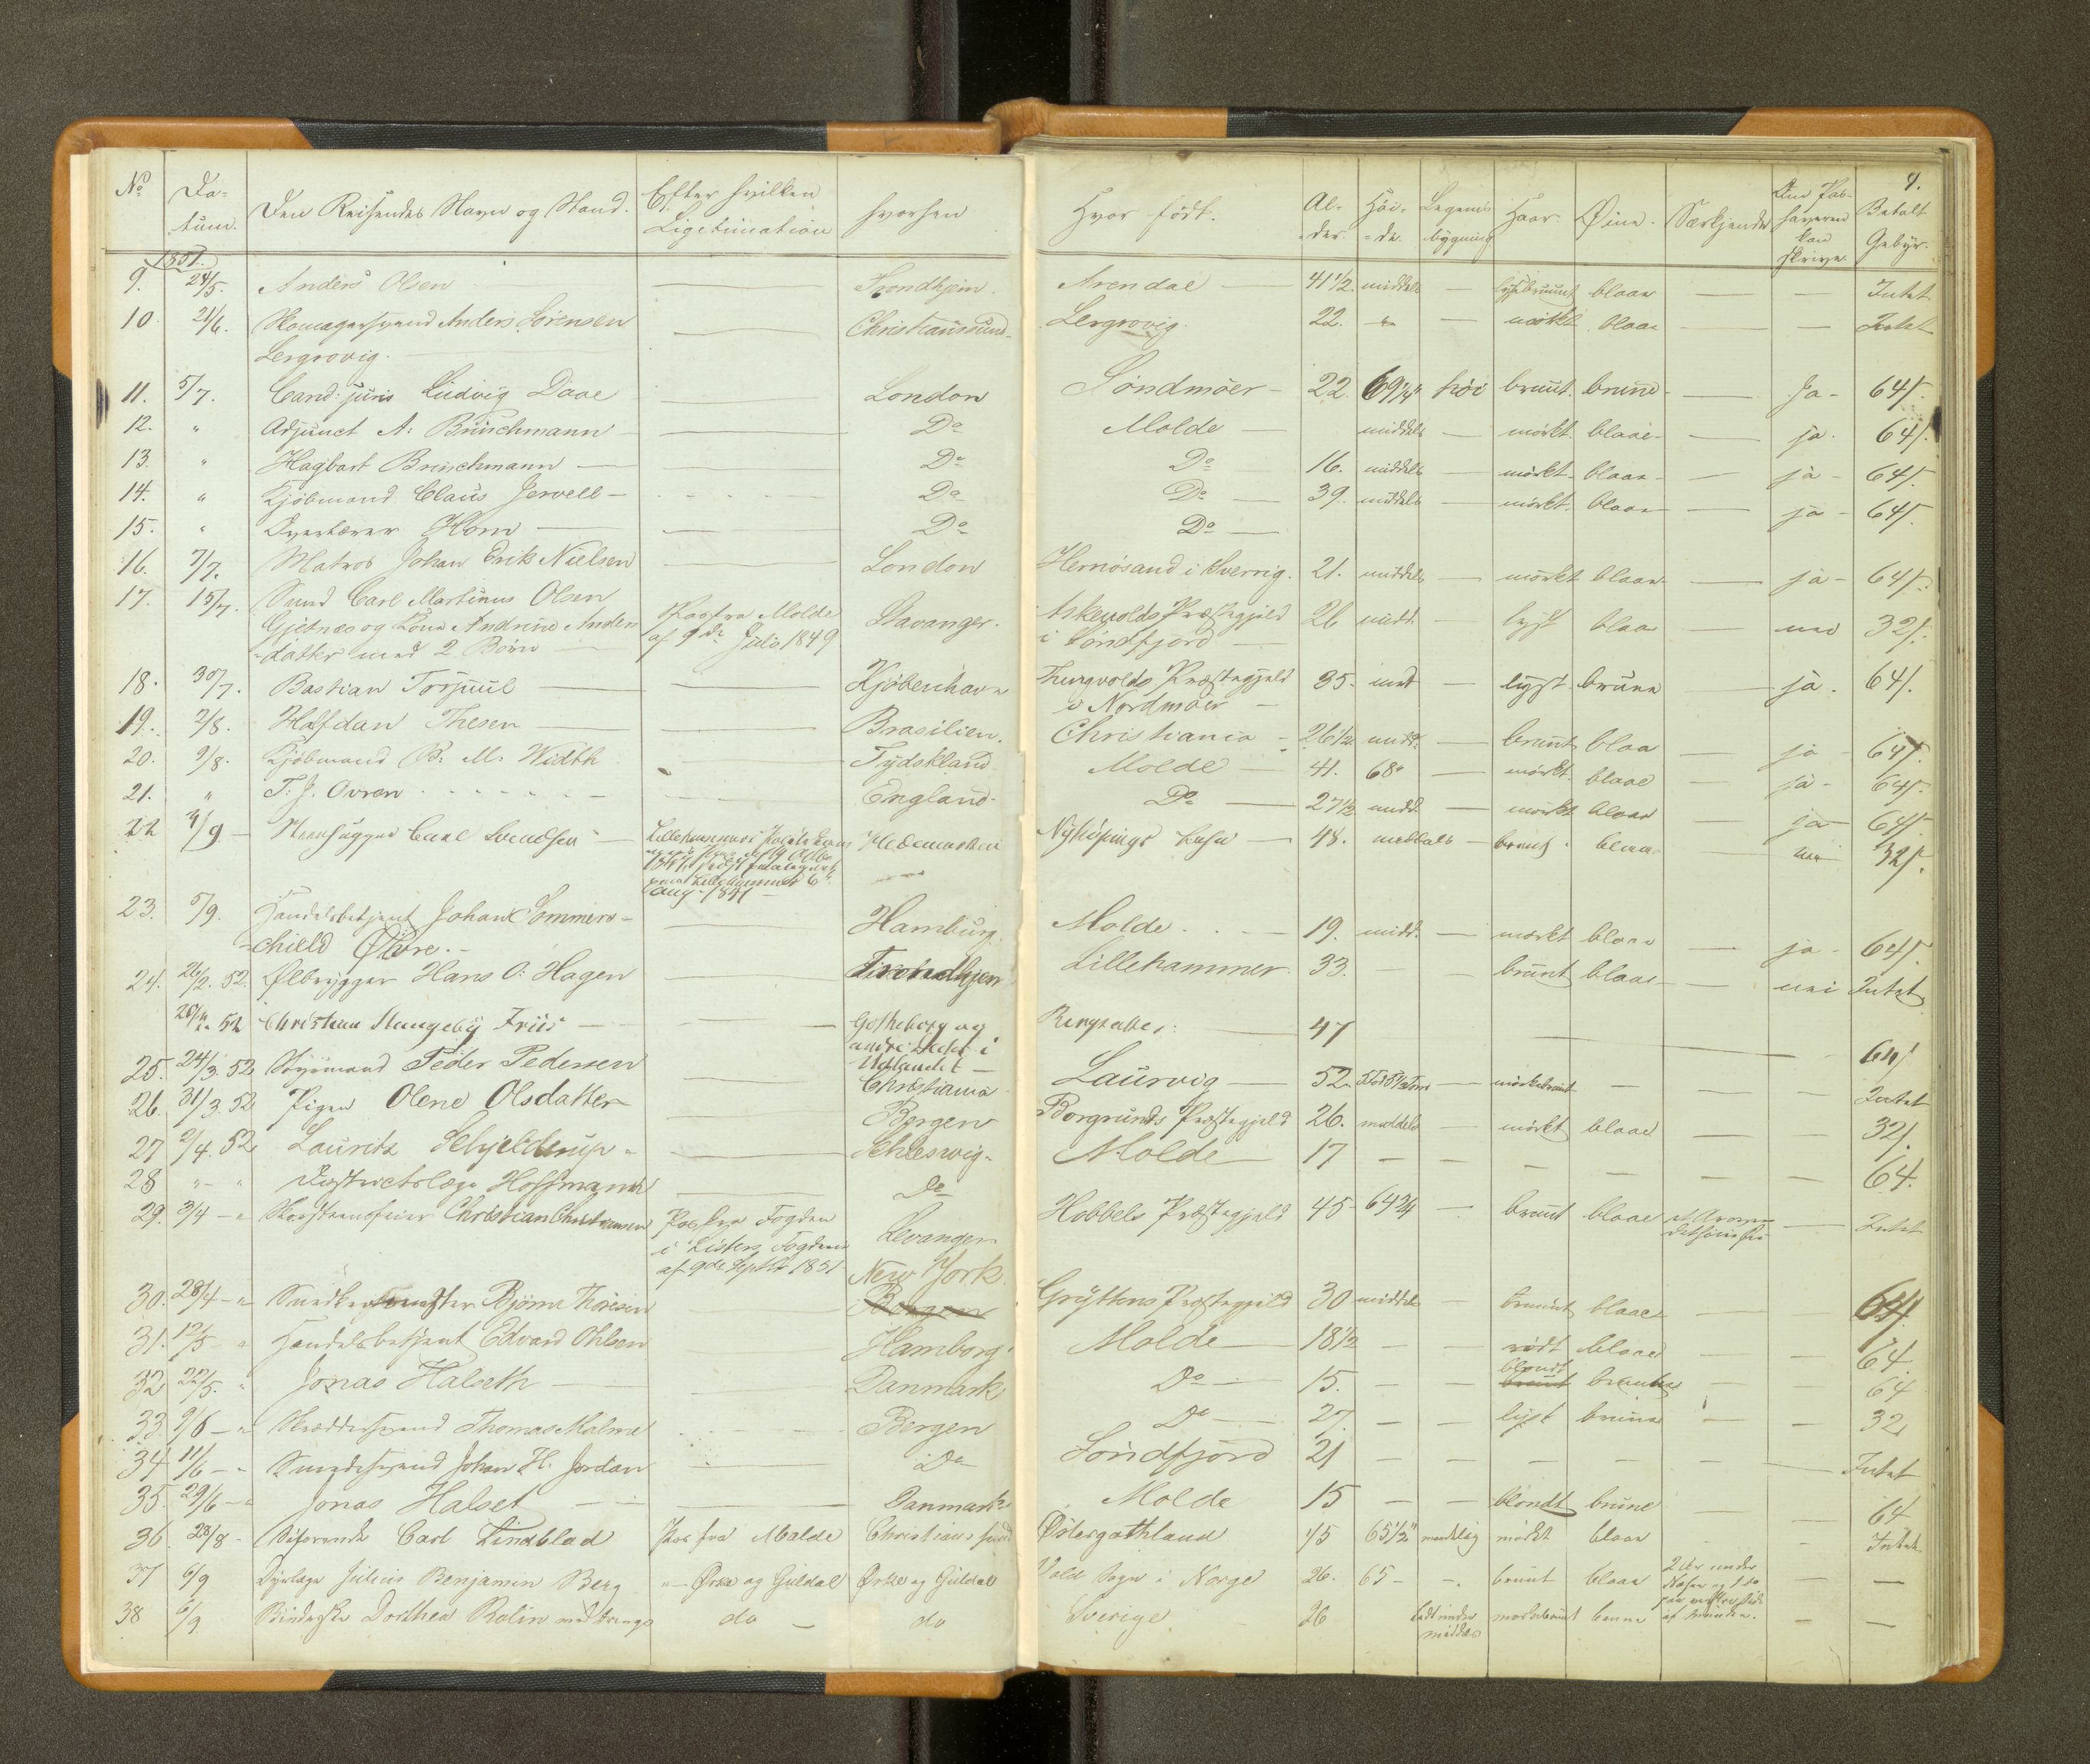 4.
No Da-tum. Den Reisendes Navn og Stand. Efter hvilken Legitimation hvorhen Hvor født. Al-der. Høi-de. Legems bygning Haar. Øine. Særkjende Om Pas-haveren kan skrive Betalt Gebyr.
1851.
9. 24/5 Anders Olsen — — Trondhjem. Arendal — 41 1/2. middels — lysebruunt blaae — — Intet
10. 21/6. Skomagersvend Anders Sørensen — Christianssund. Lergrovig. 22. — mørkt blaae — — Intet
Lergrovig.
11. 5/7. Cand: juris Ludvig Daae — London Søndmøer — 22 69 1/4" høi bruunt. brune — Ja — 64/.
12. " Adjunct A: Brinchmann — — Do Molde — middels — mørkt. blaae — ja. 64/.
13. " Hagbart Brinchmann — — Do Do 16. middels — mørkt. blaae — ja — 64/.
14. " Kjøbmand Claus Jervell — — Do Do — 39. middels — mørkt. blaae — ja — 64/.
15. " Overlærer Horn — — Do Do —
16. 7/7. Matros Johan Erik Nielsen — London Hernøsand i Sverrig. 21. middels — mørkt blaae — ja — 64/.
17. 15/7. Svend Carl Martinus Olsen
Gjetnes og Kone Andrine Anders-datter med 2 Børn — Pas fra Molde af 9de Julio 1849 Stavanger. Askevolds Præstegjeld i Søndfjord — 26 midd. — lyst blaae — nei 32/.
18. 30/7. Bastian Torjuul — — Kjøbenhavn Tingvolds Præstegjeld i Nordmøer — 35. midd — lyst brune — ja. 64/.
19. 2/8. Halfdan Thesen — — Brasilien. Christiania — 26 1/2 midd. — bruunt blaa — ja — 64/.
20. 9/8. Kjøbmand P. M. Width — Tydskland Molde — 41. 68" — mørkt. blaae — ja — 64/.
21. " T. J. Ovren — — England. Do — 27 1/2 midd. — mørkt blaae — ja 64/.
22 4/9 — Carl Svendsen — Lillehammers Hedemarken Nykjøpings — 48. middels — bruunt. blaae — nei 32/.
Lillehammer 6 Aug. 1841 —
23. 5/9. Handelsbetjent Johan Sommers-chield Øwre. — — Hamburg. Molde — 19. midd. — mørkt blaae — ja — 64/.
24. 26/2. 52. Ølbrygger Hans O: Hagen — Trondhjem Lillehammer. 33. — bruunt blaae — nei Intet
52 Christian Stangeby Friis — — Gotheborg og andre Steder i Udlandet — Ringsaker. — 47 — — 64/
25. 24/3. 52 Styrmand Peder Pedersen — Christiania Laurvig — 52. — mørkebruunt — — — Intet
26. 31/3. 52 Pigen Olene Olsdatter — Bergen Borgunds Præstegjeld 26. middels — mørkt blaae — — 32/.
27 2/4. 52 Lauritz Schjelderup — Schleswig. Molde — 17 — — — — — — 64.
28 " - " Districtslæge Hoffmann — Do
29. 3/4 — " Skorsteensfeier Christian Christiansen Pas fra Fogden i Listers Fogderi af 9de Septbr 1851 Levanger Hobbels Præstegjeld 45 64 3/4 — bruunt blaae — Intet
30. 28/4 — " Bjørne Thoresen — New York. Bergen Gryttens Præstegjeld 30 middels — bruunt blaae — — 64/.
31. 12/5 — " Handelsbetjent Edvard Ohlsen — Hamborg. Molde — 18 1/2 — — rødt blaae — — 64.
32 22/5. " Jonas Halseth — — Danmark Do — 15. — — blondt bruunt brune — — 64
33. 9/6 — " Skræddersvend Thomas Malme — Bergen Do — 27. — — lyst brune — — 32
34 11/6 — " Smedesvend Johan H. Jordan — Do Søndfjord 21 — — — — — — Intet
35. 29/6 — " Jonas Halset — — Danmark Molde 15 — — blondt brune — — 64
36. 28/8 — Søfarende Carl Lindblad Pas fra Molde Christianssund Østergothland 45 65 1/2" mørkt blaae — — Intet
37 6/9 Dyrlæge Julius Benjamin Berg "— Ørke og Guldal Ørke og Guldal Vold Sogn i Norge 26. 65 — —. bruunt blaae 2 Ar under Næsen og 1 do paa venstre Side af Munden. — —
38 6/9 Dorthea Rolin med Drenge do — do Sverige. 26 lidt under middels mørkebruunt brune — —